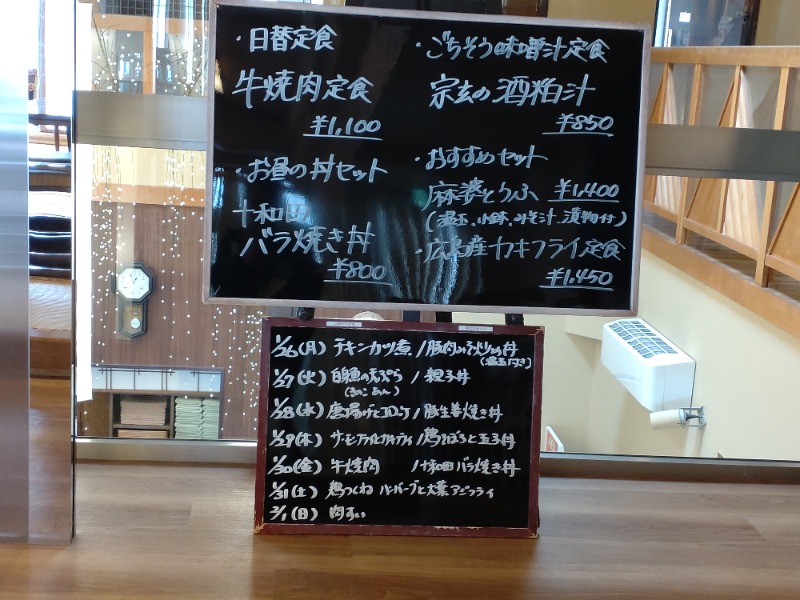 ・日替定食
牛焼肉定食
¥1,100
・お昼の丼セット
十和田
バラ焼き丼
¥800
・ごちそう味噌汁定食
宗玄の酒粕汁
¥850
・おすすめセット
麻婆とうふ ¥1,400
(温玉、小鉢、みそ汁、漬物付)
・広島産カキフライ定食
¥1,450
1/26(月) チキンカツ煮 / 豚肉みそ炒め丼
(温玉付き)
1/27(火) 白身魚の天ぷら / 親子丼
(きのこあん)
1/28(水) 唐揚げとコロッケ / 豚生姜焼き丼
1/29(木) サーモンフライとカキフライ / 鶏そぼろと玉子丼
1/30(金) 牛焼肉 / 十和田バラ焼き丼
1/31(土) 鶏つくねハンバーグと大葉アジフライ
2/1(日) 肉すい